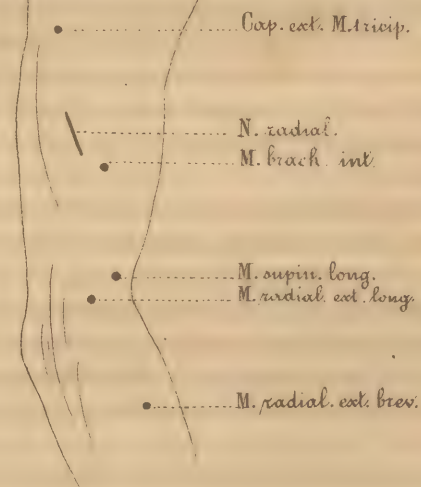 Cap. ext. M. tricip.
N. radial.
M. brach. int.
M. supin. long.
M. radial. ext. long.
M. radial. ext. brev.